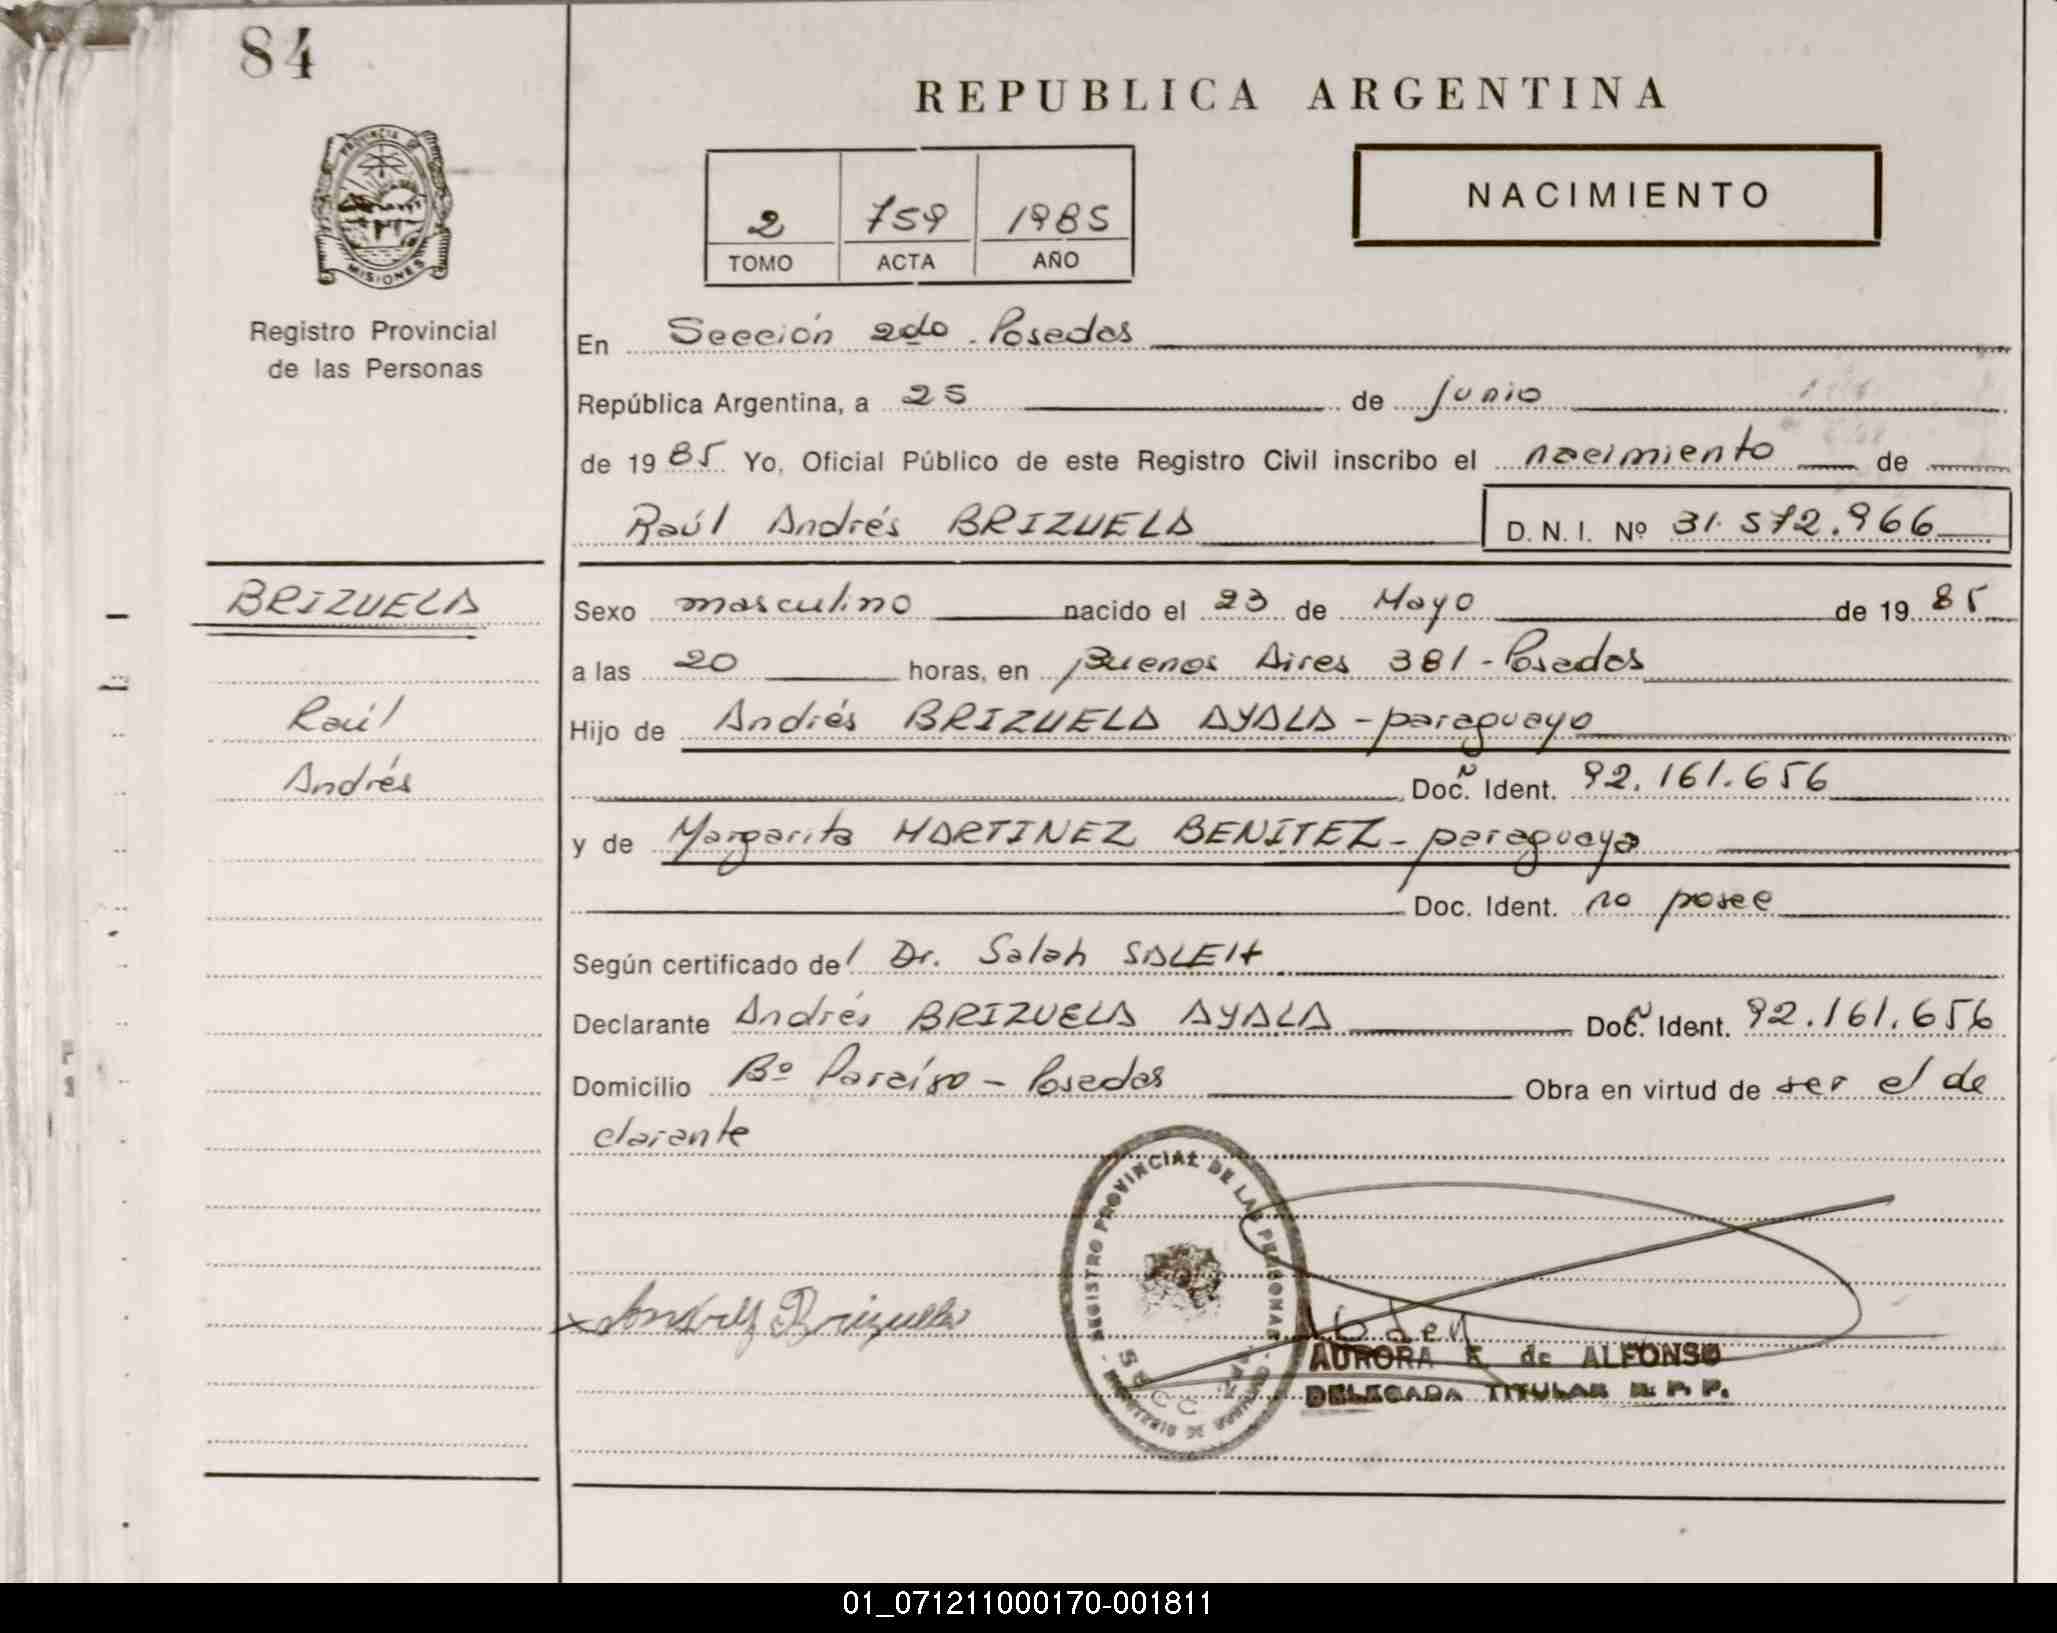 84
REPUBLICA ARGENTINA
PROVINCIA DE
MISIONES
Registro Provincial
de las Personas
2 759 1985
TOMO ACTA AÑO
NACIMIENTO
En Sección 2do. Posadas
República Argentina, a 25 de junio
de 1985 Yo, Oficial Público de este Registro Civil inscribo el nacimiento de
Raúl Andrés BRIZUELA D. N. I. Nº 31.572.966
BRIZUELA
Raúl
Andrés
Sexo masculino nacido el 23 de Mayo de 1985
a las 20 horas, en Buenos Aires 381 - Posadas
Hijo de Andrés BRIZUELA AYALA - paraguayo
Doc. Ident. 92.161.656
y de Margarita MARTINEZ BENÍTEZ - paraguaya
Doc. Ident. no posee
Según certificado del Dr. Salah SALEH
Declarante Andrés BRIZUELA AYALA Doc. Ident. 92.161.656
Domicilio Bº Paraíso - Posadas Obra en virtud de ser el de
clarante
REGISTRO PROVINCIAL DE LAS PERSONAS
MINISTERIO DE GOBIERNO
SECC
Andrés Brizuela
AURORA E. de ALFONSO
DELEGADA TITULAR R. P. P.
01_071211000170-001811